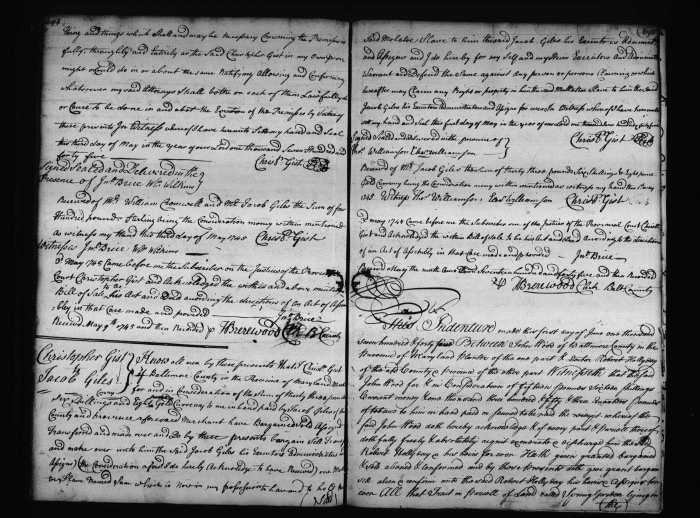 thing and things which Shall and may be necessary Concerning the Premises as
fully, throughly and entirely as the Said Christopher Gist in my own person
might or Could do in or about the same Ratifying Allowing and Confirming
whatsoever my said Attorneys Shall both or each of them Lawfully do
or Cause to be done in and about the Execution of the Premises by Virtue of
these presents In Witness whereof I have hereunto Set my hand and Seal
this third day of May in the year of our Lord one thousand Seven Hundred and
forty five Christr. Gist
Signed Sealed and Delivered in the
Presence of Jno. Brice Wm. Wilkins
Received of Mr. William Cromwell and Mr. Jacob Giles the Sum of
Hundred pounds Sterling being the Consideration money within mentioned
as witness my Hand this third day of May 1745 Christr. Gist
Witness Jno. Brice Wm. Wilkins
3d May 1745 Came before me the Subscriber one of the Justices of the Provincial
Court Christopher Gist and acknowledged the within and above mentioned
Bill of Sale to be his Act and Deed according the directions of an Act of Assem-
bly in that Case made and provided Jno. Brice
Received May 9th 1745 and then Recorded TBrerewood Clk B County
Christopher Gist
To
Jacob Giles
Know all men by these presents that I Christr. Gist
of Baltimore County in the Province of Maryland
for and in Consideration of the Sum of thirty three pounds
Six Shillings and Eight Gold Currency to me in hand paid by Jacob Giles of the
County and province aforesaid Merchant have Bargained Assigned
Transferred and made over and do by these presents Bargain Sell Transfer
and make over unto him the Said Jacob Giles his Executors Administrators or
Assigns (the Consideration aforesd. I do hereby Acknowledge to have Received) one
Slave Named Sam which is now in my possession to have and to hold
Said Molatoe Slave to him the said Jacob Giles his Executors Administ.
and Assigns and I do hereby for my Self and my Heirs Executors and Administ
Warrant and Defend the Same against any person or persons Claiming or which
hereafter may Claim any Right or property in him the said Molatoe Slave to him the said
Jacob Giles his Executors Administrators and Assigns for ever In Witness whereof I have hereunto
my hand and Seal this first day of May in the year of our Lord
Signed Sealed and Delivered in the presence of Christr. Gist
Thos. Williamson
Received of Mr. Jacob Giles the Sum of thirty three pounds Six Shillings & Eight pence
Gold Currency being the Consideration money within mentioned as witness my hand this
1745 Witness Thos. Williamson Christr. Gist
3d may 1745 Came before me the Subscriber one of the Justices of the Provincial Court Christr.
Gist and Acknowledged the within Bill of Sale to be his Act and Deed According to the direction
of an Act of Assembly in that Case made and provided Jno. Brice
Received May the ninth Seventeen hundred and forty five and then Recorded
TBrerewood Clk Balt County
This Indenture made this first day of June one thousand
Seven hundred & forty five Between John Wood of Baltimore County in the
Province of Maryland Planter of the one part & Doctor Robert Holliday
of the afsd County & Province of the other part Witnesseth that the Said
John Wood for & in Consideration of fifteen pounds Sixteen Shillings
Current money
of tobacco to him in hand paid or Secured to be paid the receipt whereof the
Said John Wood doth hereby acknowledge & of every part & parcell thereof
doth fully freely & absolutely acquit exonerate & discharge him the said
Robert Holliday & his heirs for ever Hath given granted bargained
& Sold aliened & confirmed and by these presents doth give grant bargain
sell alien & confirm unto the said Robert Holliday his heirs & assigns for
ever All that Tract or Parcell of Land called Young lying on
(the